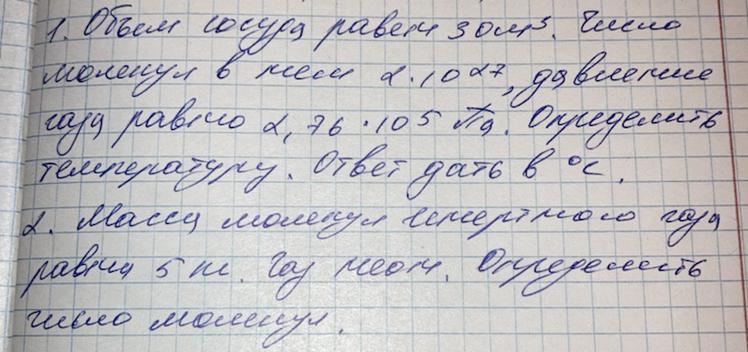 1. Объем сосуда равен 30 м³. Число
молекул в нем 2·10²⁷, давление
газа равно 2,76·10⁵ Па. Определить
температуру. Ответ дать в °C.
2. Масса молекул инертного газа
равна 5 кг. Газ неон. Определить
число молекул.